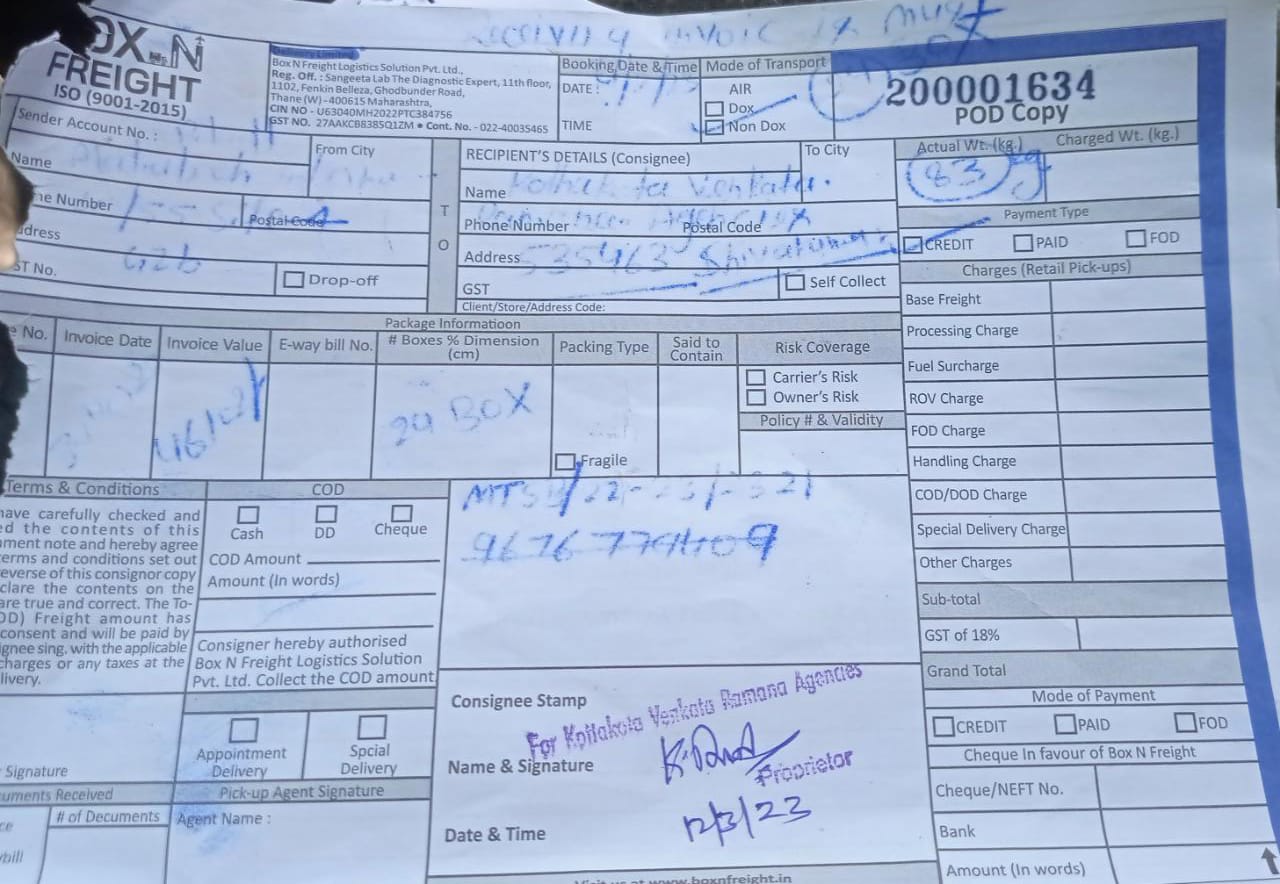 BOX N
FREIGHT
ISO (9001-2015)
Delivery Limited
Box N Freight Logistics Solution Pvt. Ltd.,
Reg. Off. : Sangeeta Lab The Diagnostic Expert, 11th floor,
1102, Fenkin Belleza, Ghodbunder Road,
Thane (W) - 400615 Maharashtra,
CIN NO - U63040MH2022PTC384756
GST NO. 27AAKCB8385Q1ZM • Cont. No. - 022-40035465
Booking Date & Time
DATE :
TIME
Mode of Transport
AIR
Dox
Non Dox
200001634
POD Copy
Sender Account No. :
Name
From City
ne Number
Postal Code
ddress
GZB
ST No.
Drop-off
T
O
RECIPIENT'S DETAILS (Consignee)
To City
Name
Venkata
Phone Number
Postal Code
Address 535463
GST
Self Collect
Client/Store/Address Code:
Actual Wt. (kg.)
Charged Wt. (kg.)
83 kg
Payment Type
CREDIT
PAID
FOD
Charges (Retail Pick-ups)
Base Freight
Processing Charge
Fuel Surcharge
ROV Charge
FOD Charge
Handling Charge
COD/DOD Charge
Special Delivery Charge
Other Charges
Sub-total
GST of 18%
Grand Total
Mode of Payment
CREDIT
PAID
FOD
Cheque In favour of Box N Freight
Cheque/NEFT No.
Bank
Amount (In words)
Package Informatioon
e No.
Invoice Date
Invoice Value
E-way bill No.
# Boxes % Dimension
(cm)
Packing Type
Said to
Contain
Risk Coverage
29 BOX
Fragile
Carrier's Risk
Owner's Risk
Policy # & Validity
Terms & Conditions
have carefully checked and
ed the contents of this
ment note and hereby agree
erms and conditions set out
everse of this consignor copy
clare the contents on the
are true and correct. The To-
OD) Freight amount has
consent and will be paid by
ignee sing, with the applicable
charges or any taxes at the
livery.
Signature
COD
Cash
DD
Cheque
COD Amount
Amount (In words)
Consigner hereby authorised
Box N Freight Logistics Solution
Pvt. Ltd. Collect the COD amount
Appointment
Delivery
Spcial
Delivery
uments Received
# of Decuments
Pick-up Agent Signature
Agent Name :
Consignee Stamp
For Kollakota Venkata Ramana Agencies
Name & Signature
Proprietor
Date & Time
12/3/23
Visit us at www.boxnfreight.in